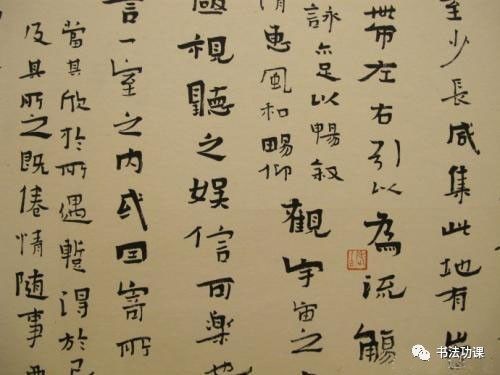 至少長咸集此地有
帶左右引以為流觴
詠亦足以暢敘
清惠風和暢仰
觀宇宙之
極視聽之娛信可樂也
言一室之內或因寄所
當其欣於所遇蹔得於己
及其所之既倦情隨事
书法功课